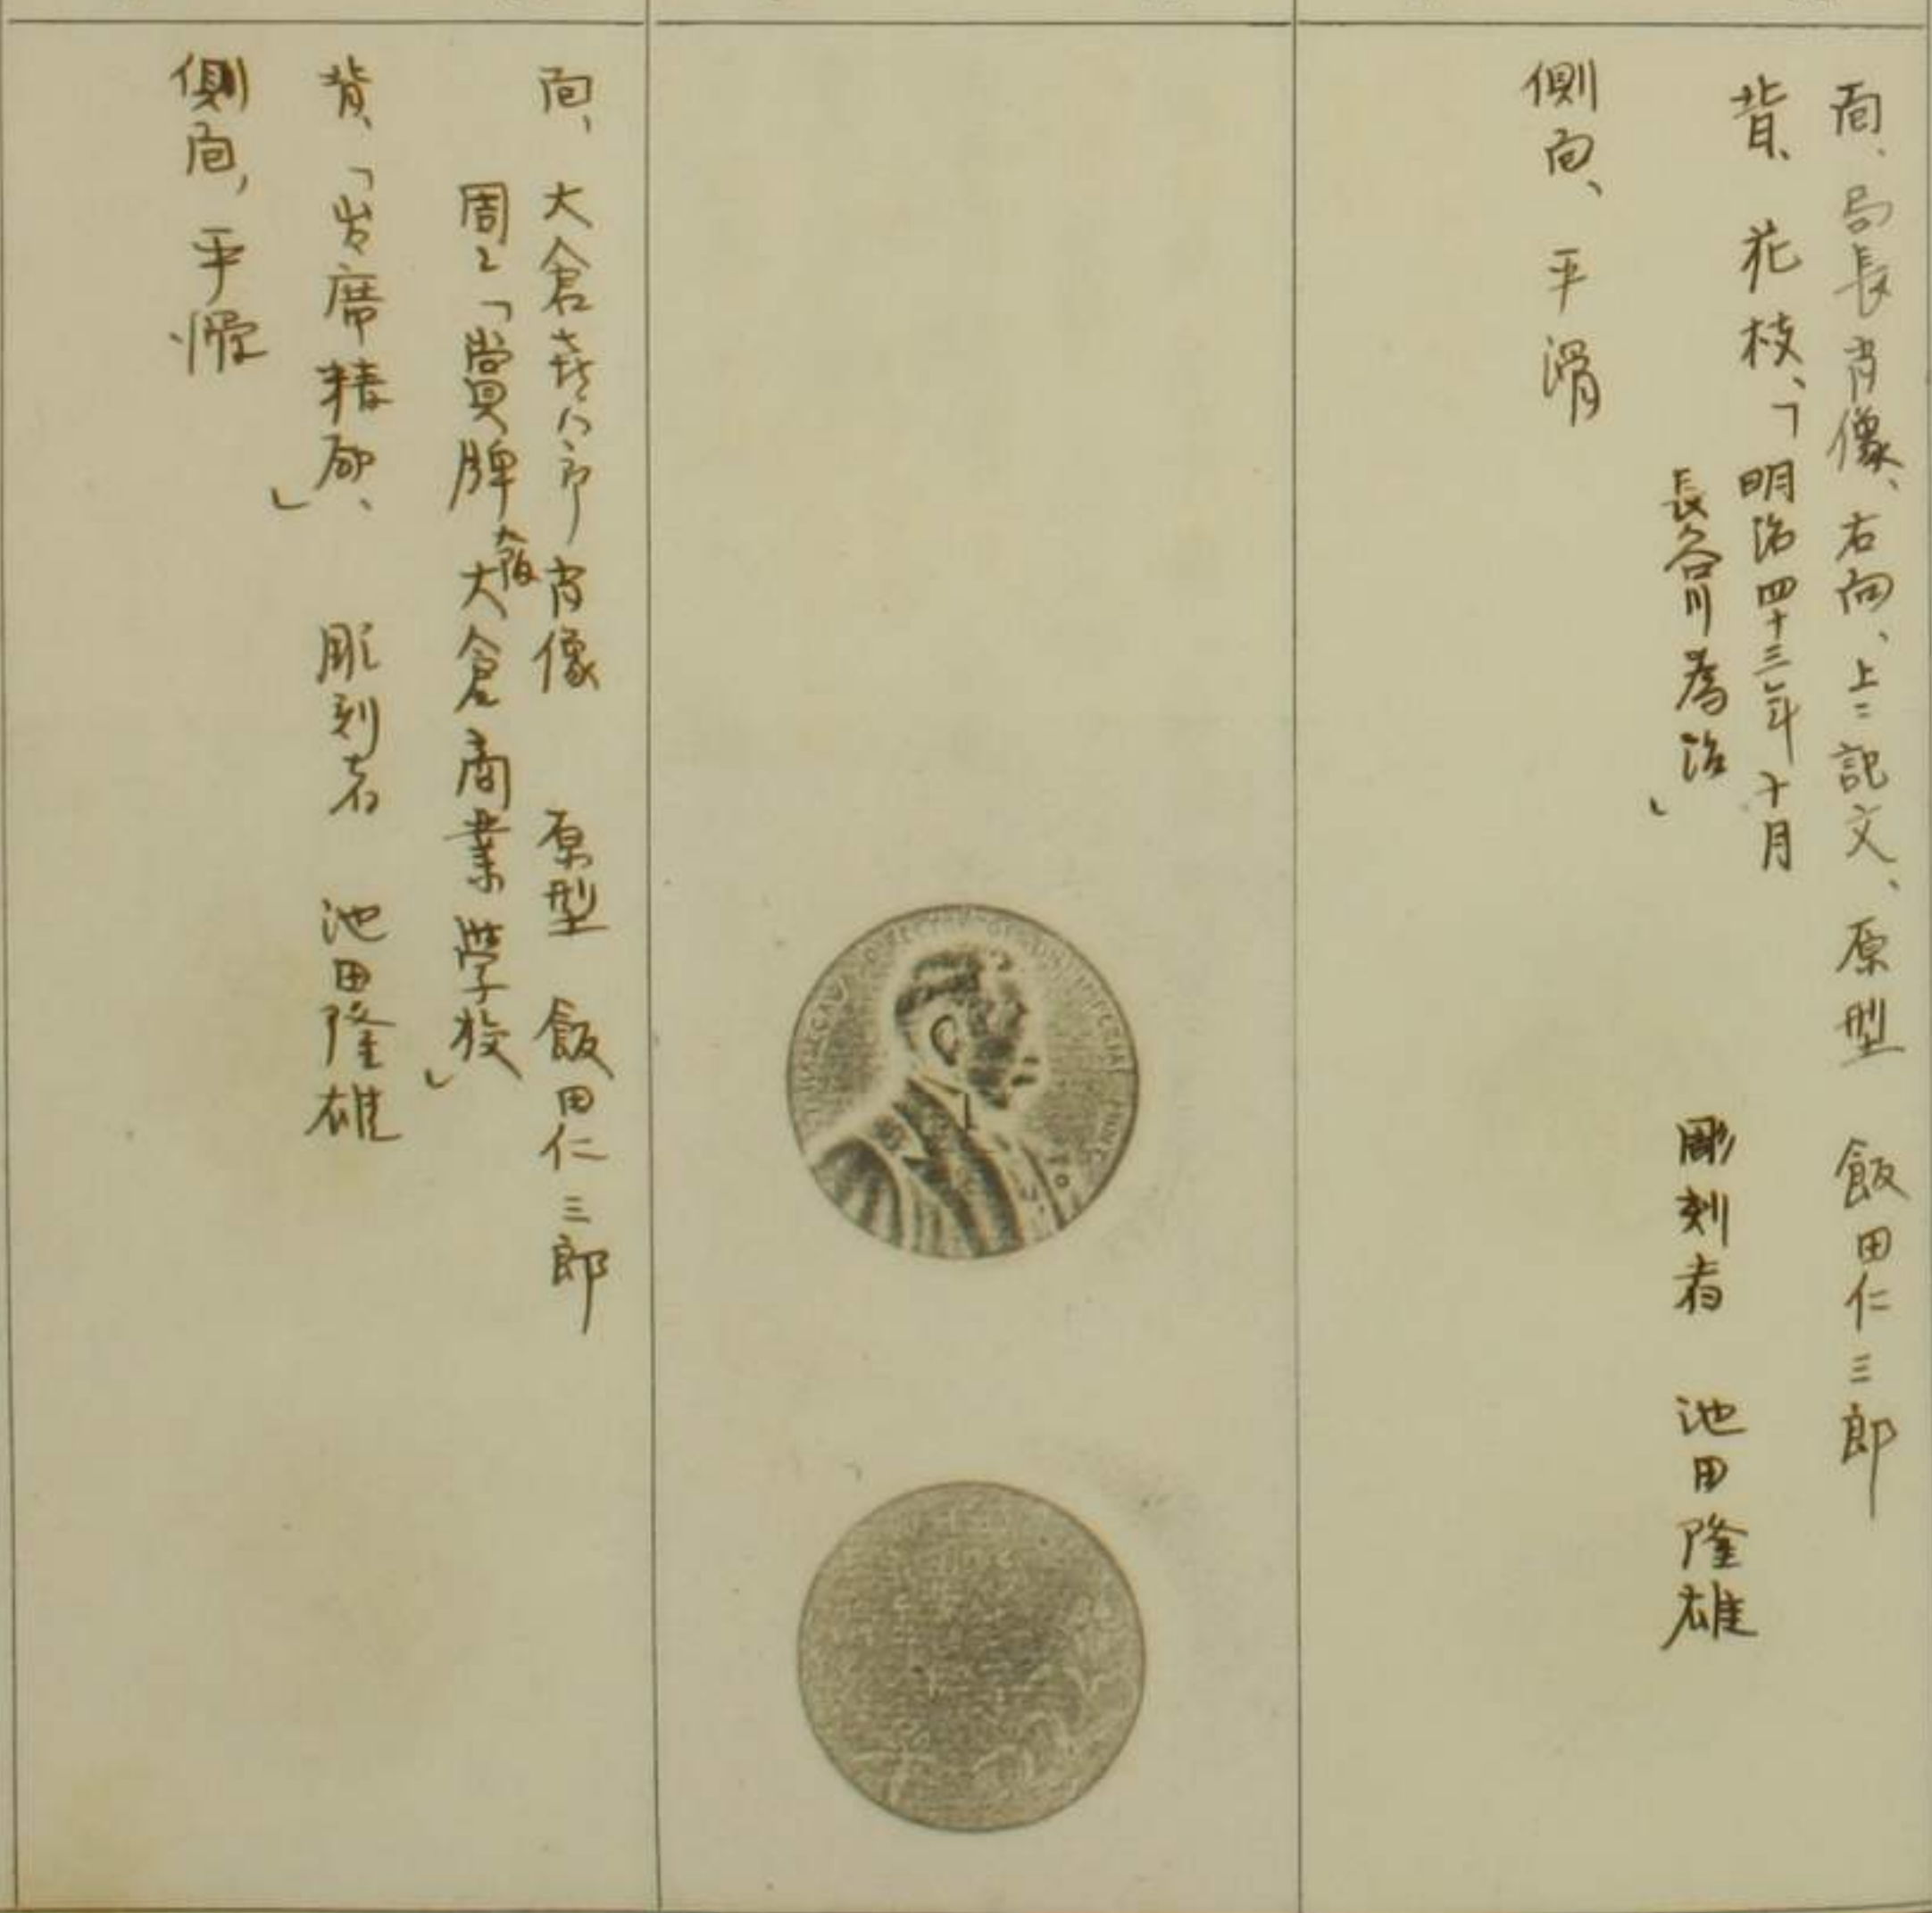 面、局長肖像、右向、上ニ記文、原型 飯田仁三郎
背、花枝、「明治四十三年十月
長谷川為治」
彫刻者 池田隆雄
側面、平滑
面、大倉喜八郎肖像 原型 飯田仁三郎
周ニ「賞牌 大阪大倉商業学校」
背、「出席精励、」 彫刻者 池田隆雄
側面、平滑